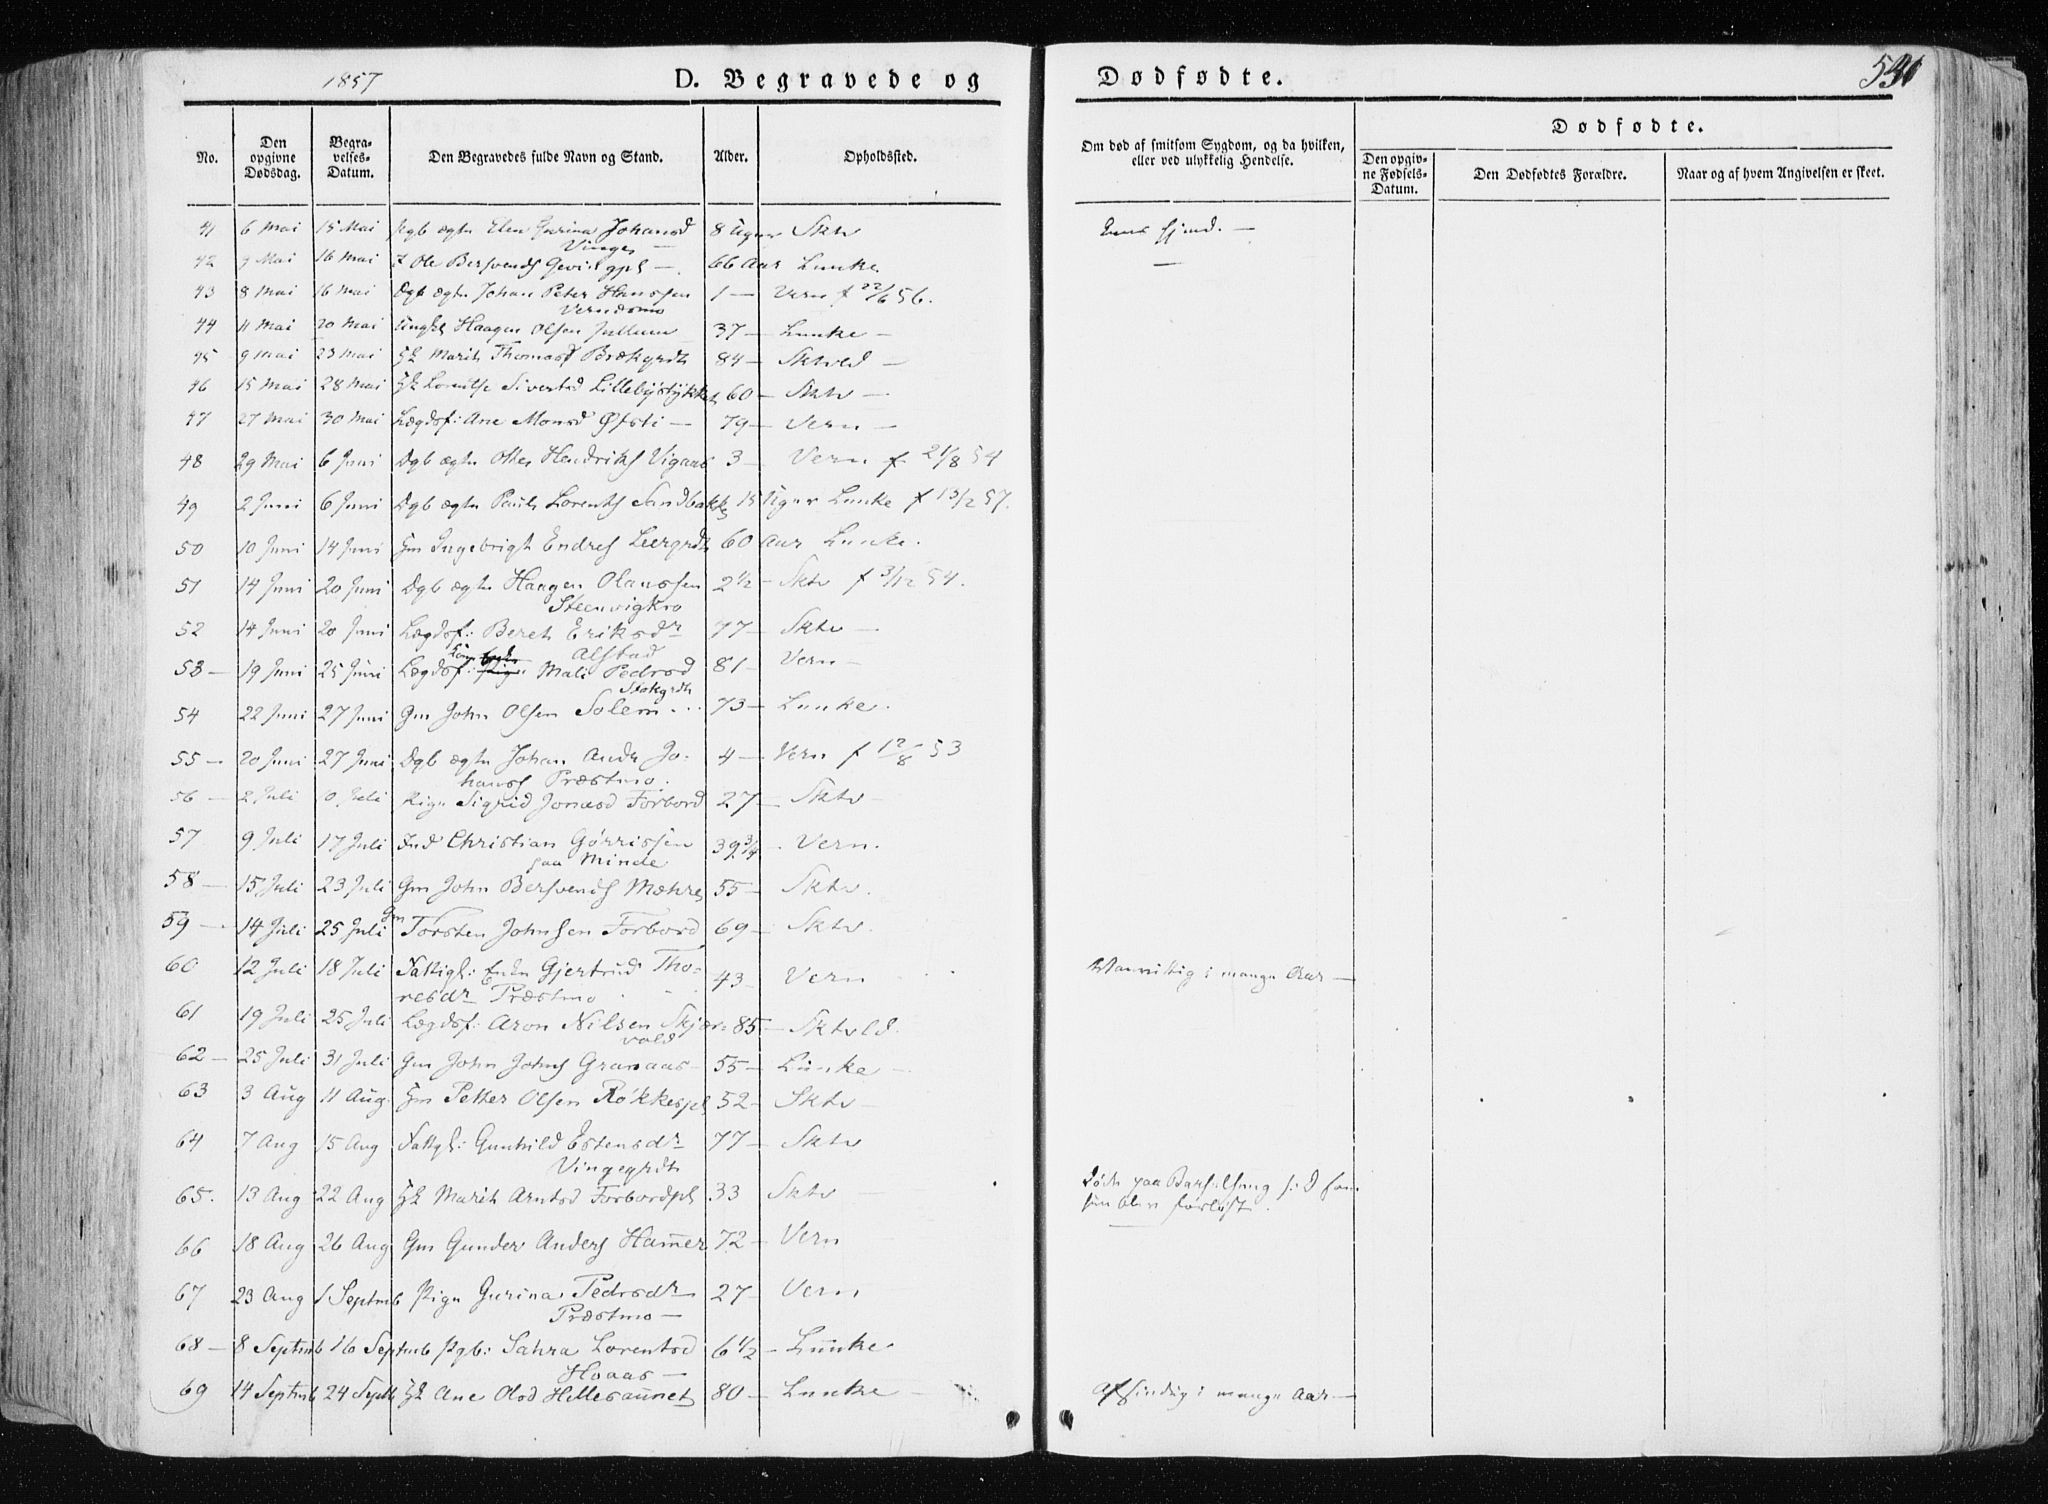 1857
D. Begravede og
Dødfødte.
No.
Den opgivne Dødsdag.
Begra-velses-Datum.
Den Begravedes fulde Navn og Stand.
Alder.
Opholdssted.
Om død af smitsom Sygdom, og da hvilken, eller ved ulykkelig Hendelse.
Dødfødte.
Den opgiv-ne Fødsels-Datum.
Den Dødfødtes Forældre.
Naar og af hvem Angivelsen er skeet.
41 6 Mai 15 Mai Pgb ægte Elen Gurina Johansd 8 Uger Sktv
Vinges —
42 9 Mai 16 Mai Ole Bersvends 66 Aar Lunke.
43 8 Mai 16 Mai Dgb ægte Johan Peter Hanssen 1 — Vern f 22/6 56.
Vernesmo
44 11 Mai 20 Mai Ungkl Haagen Olsen Jullum 37 — Lunke —
45 9 Mai 23 Mai Gk Marit Thomasd Brækgrdt 84 — Sktvld —
46 15 Mai 28 Mai Gk Lorentse Sivertsd Lillebystykket 60 — Sktv —
47 27 Mai 30 Mai Lægdsf: Ane Monsd Øfsti — 79 — Vern —
48 29 Mai 6 Juni Dgb ægte Hendriks Vigaas 3 — Vern f 21/8 54
49 2 Juni 6 Juni Dgb ægte Paul Lorents Sandbakk 15 Uger Lunke f 13/2 57.
50 10 Juni 14 Juni Gm Ingebrigt Endres Leergrdt 60 Aar Lunke.
51 14 Juni 20 Juni Dgb ægte Haagen Olaussen 2 1/2 — Sktv f 3/12 54.
Steenvigkro
52 14 Juni 20 Juni Lægdsf: Beret Eriksdr 77 — Sktv —
Alstad
53 — 19 Juni 25 Juni Lægdsf: Mali Pedersd 81 — Vern —
Stokgrdt
54 22 Juni 27 Juni Gm John Olsen Solem 73 — Lunke.
55 — 20 Juni 27 Juni Dgb ægte Johan Andr Jo- 4 — Vern f 12/8 53
hans Præstmo.
56 — 2 Juli Juli Pige Sigrid Jonasd Forbord 27 — Sktv —
57 9 Juli 17 Juli Ind Christian Gørrissen 39 3/4 Vern.
paa Minde
58 — 15 Juli 23 Juli Gm John Bersvends Mæhre 55 — Sktv.
59 — 14 Juli 25 Juli Gm Torsten Johnsen Forbord 69 — Sktv.
60 12 Juli 18 Juli Fattigl: Enke Gjertrud Tho- 43 Vern Vanvittig i mange Aar —
resdr Præstmo
61 19 Juli 25 Juli Lægdsf: Aron Nilsen Skjer- 85 — Sktvld.
vold
62 — 25 Juli 31 Juli Gm John Johns Granaas — 55 — Lunke —
63 3 Aug 11 Aug. Gm Petter Olsen Røkkespl 52 — Sktv —
64 7 Aug 15 Aug Fattgl: Gunhild Estensdr 77 — Sktv
Vingegrdt
65. 13 Aug 22 Aug Gk Marit Arntsd Forbordpl 33 Sktv — Døde paa Barselseng
66 18 Aug 26 Aug Gm Gunder Anders Hammer 72 — Vern
67 23 Aug 1 Septmb Pige Gurina Pedrsdr 27 — Vern
Præstmo —
68 — 8 Septmb 16 Septmb Pgb: Sahra Lorentsd 6 1/2 — Lunke
Hoaas —
69 14 Septmb 24 Septb Gk Ane Olsd Hillesaunet 80 — Lunke — Afsindig i mange Aar —